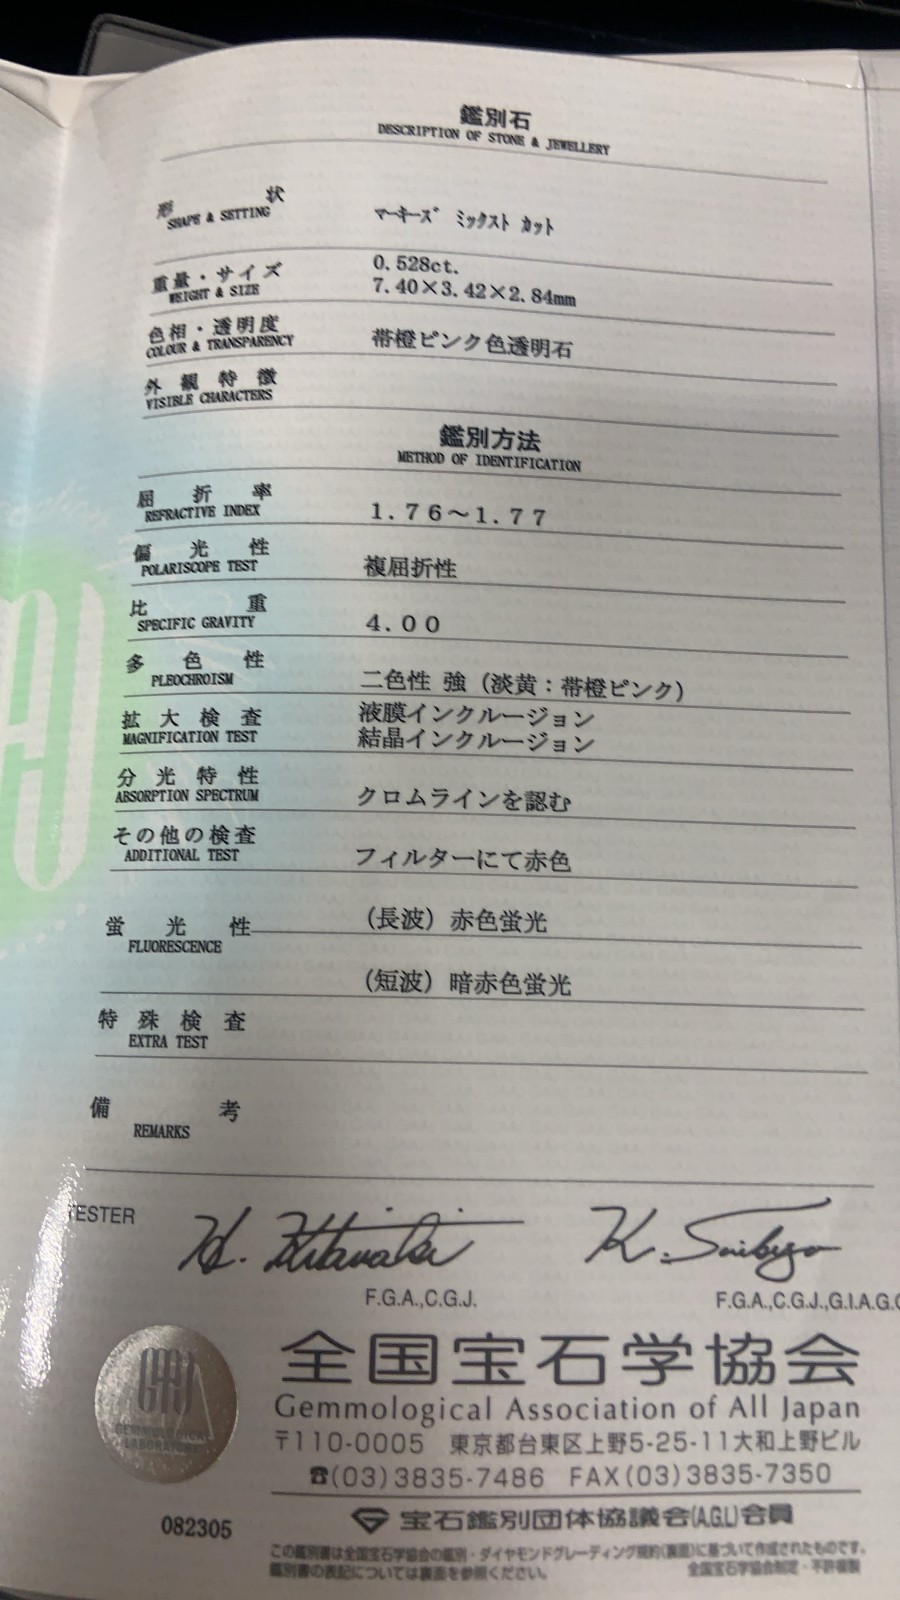 鑑別石
DESCRIPTION OF STONE & JEWELLERY
形状
SHAPE & SETTING
ﾏｰｷｰｽﾞ ﾐｯｸｽﾄ ｶｯﾄ
重量・サイズ
WEIGHT & SIZE
0.528ct.
7.40×3.42×2.84mm
色相・透明度
COLOUR & TRANSPARENCY
帯橙ピンク色透明石
外観特徴
VISIBLE CHARACTERS
鑑別方法
METHOD OF IDENTIFICATION
屈折率
REFRACTIVE INDEX
1.76〜1.77
偏光性
POLARISCOPE TEST
複屈折性
比重
SPECIFIC GRAVITY
4.00
多色性
PLEOCHROISM
二色性 強（淡黄：帯橙ピンク）
拡大検査
MAGNIFICATION TEST
液膜インクルージョン
結晶インクルージョン
分光特性
ABSORPTION SPECTRUM
クロムラインを認む
その他の検査
ADDITIONAL TEST
フィルターにて赤色
蛍光性
FLUORESCENCE
（長波）赤色蛍光
（短波）暗赤色蛍光
特殊検査
EXTRA TEST
備考
REMARKS
TESTER
F.G.A.,C.G.J.
F.G.A.,C.G.J.,G.I.A.G.G
GEMMOLOGICAL
LABORATORY
全国宝石学協会
Gemmological Association of All Japan
〒110-0005 東京都台東区上野5-25-11大和上野ビル
☎(03)3835-7486 FAX(03)3835-7350
宝石鑑別団体協議会(A.G.L)会員
082305
この鑑別書は全国宝石学協会の鑑別・ダイヤモンドグレーディング規約(裏面)に基づいて作成されたものです。
鑑別書の表記については裏面を参照ください。
全国宝石学協会制定・不許複製